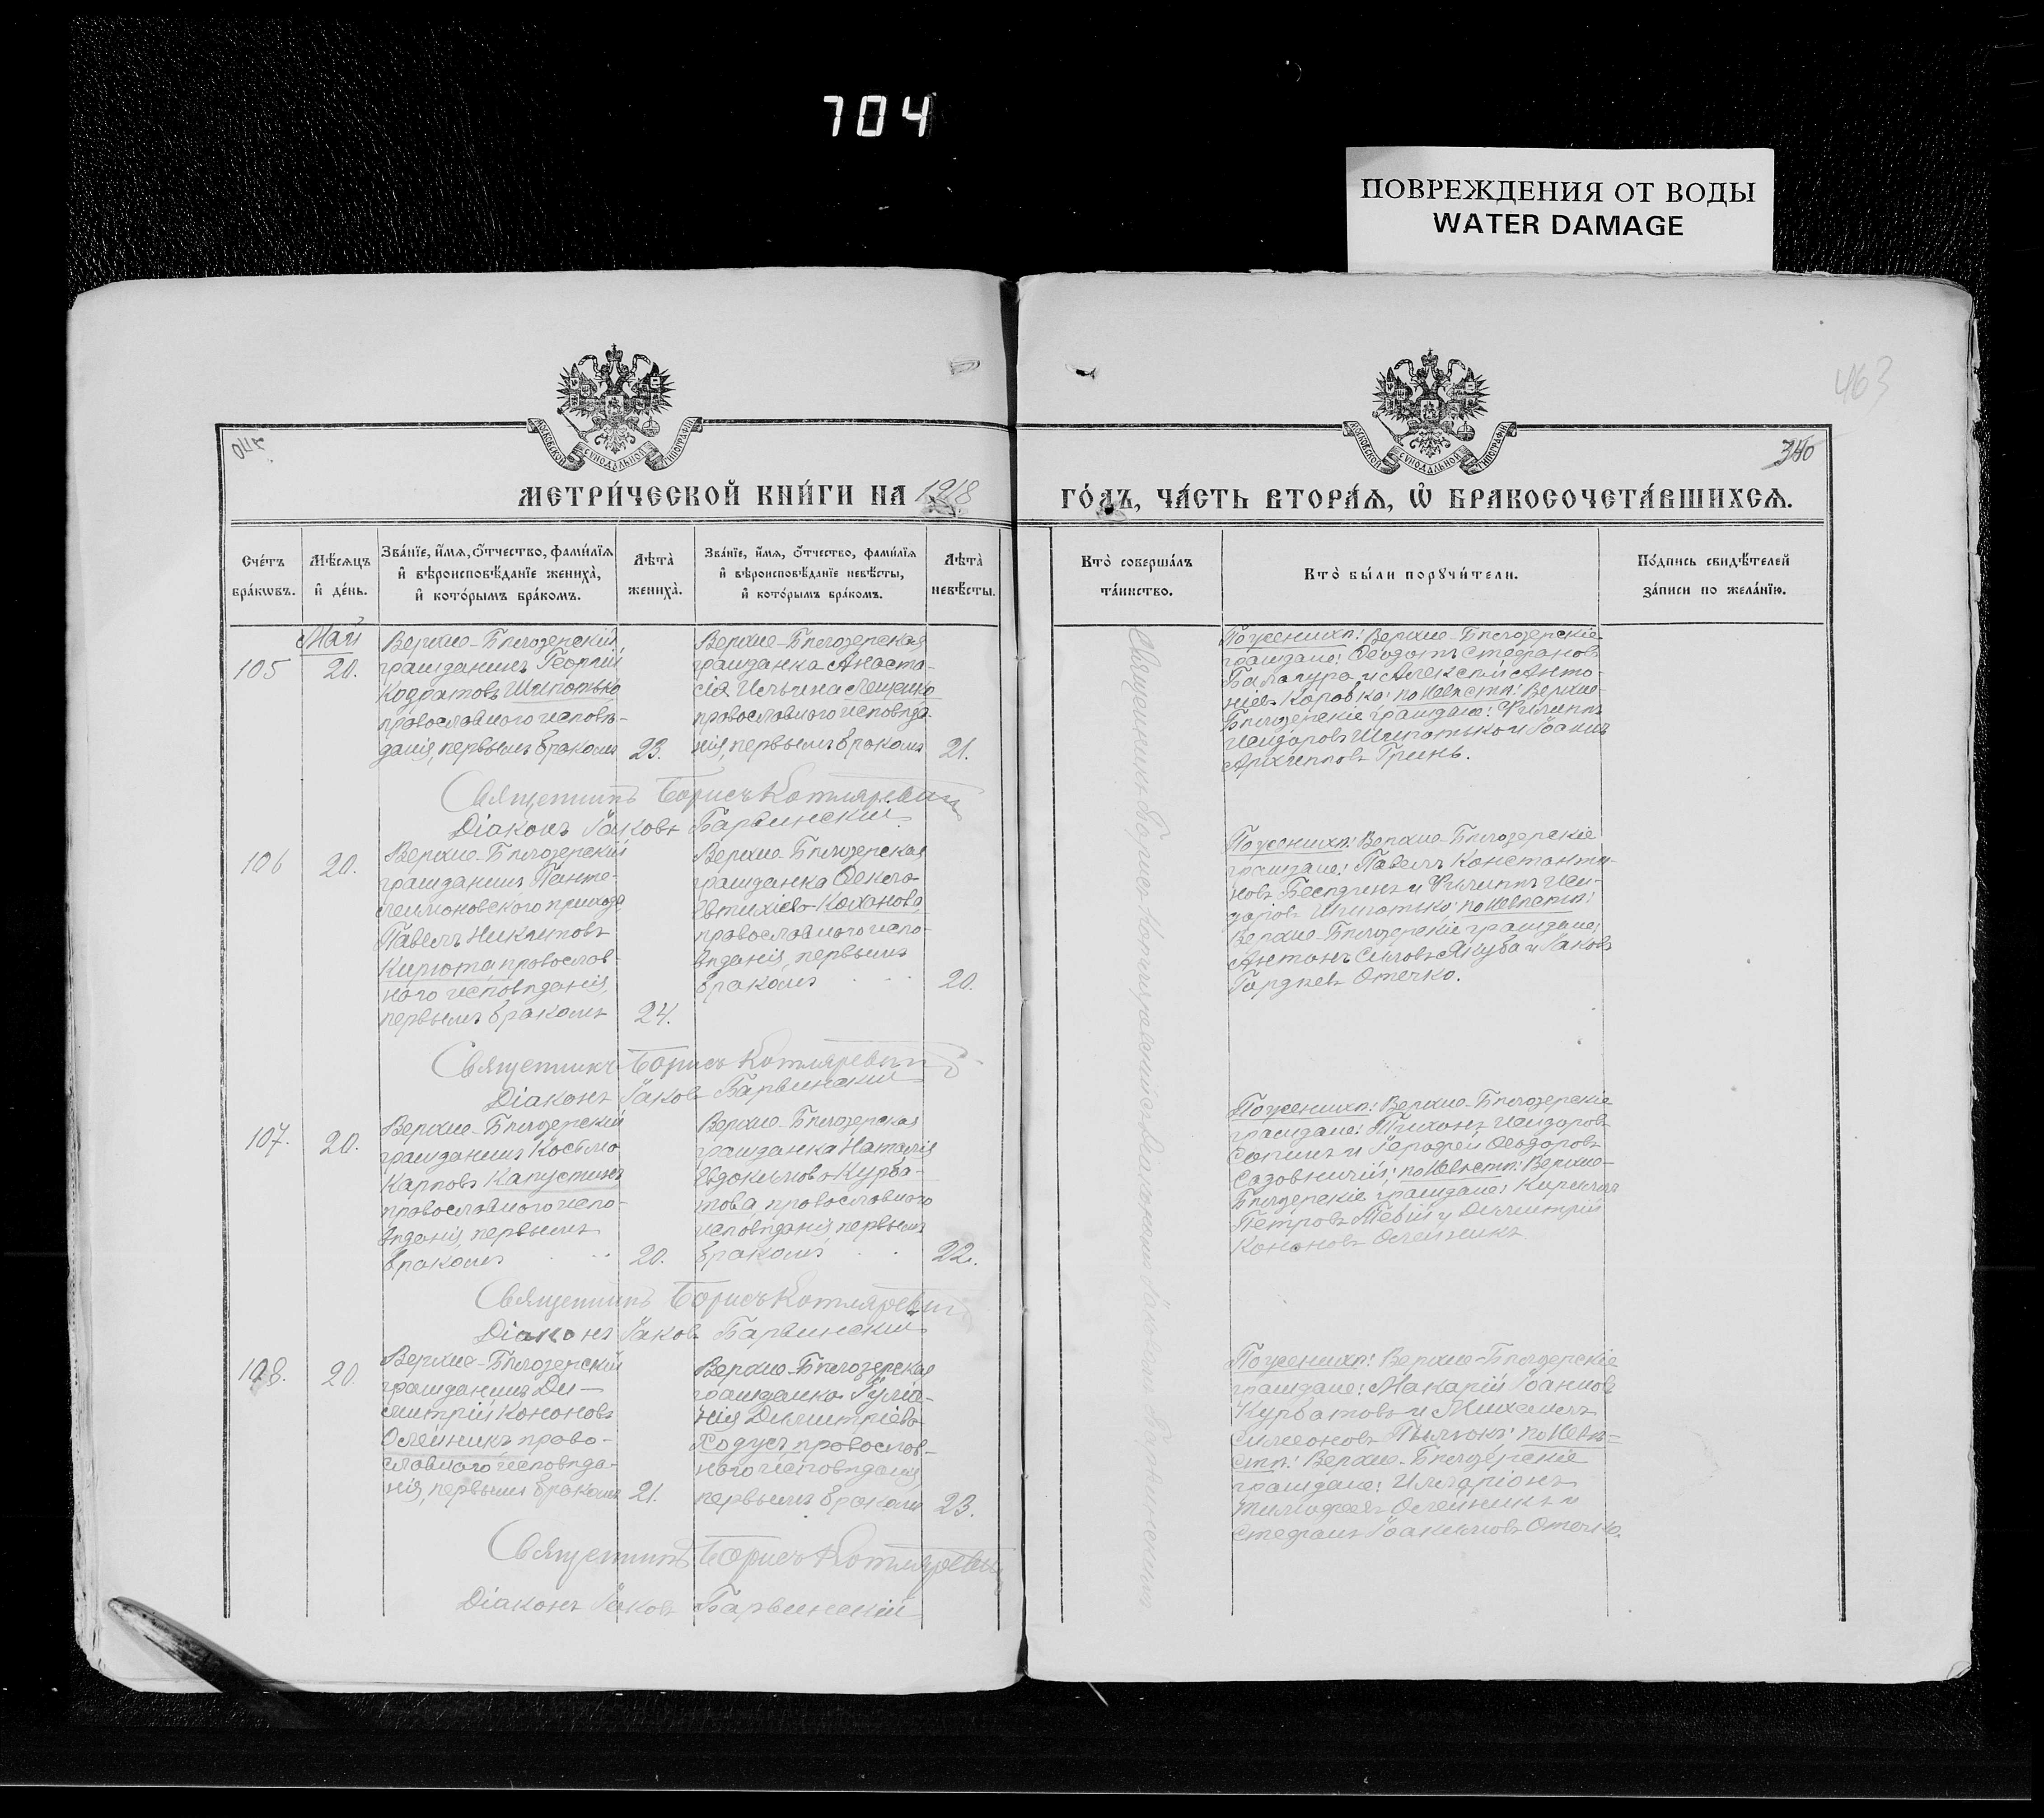 704
ПОВРЕЖДЕНИЯ ОТ ВОДЫ
WATER DAMAGE
463
340
340
МЕТРИ́ЧЕСКОЙ КНИ́ГИ НА 1918
ГО́ДЪ, ЧА́СТЬ ВТОРА́Я, Ѡ БРАКОСОЧЕТА́ВШИХСЯ.
Сче́тъ бра́кѡвъ.
Мѣ́сяцъ и҆ де́нь.
Зва́нїе, и҆́мя, ѻ҆́тчество, фамѝлїя и҆ вѣроисповѣ́данїе жениха̀, и҆ кото́рымъ бра́комъ.
Лѣта̀ жениха̀.
Зва́нїе, и҆́мя, ѻ҆́тчество, фамѝлїя и҆ вѣроисповѣ́данїе невѣ́сты, и҆ кото́рымъ бра́комъ.
Лѣта̀ невѣ́сты.
Кто̀ соверша́лъ та́инство.
Кто̀ бы́ли порꙋчи́тели.
По́дпись свидѣ́телей за́писи по жела́нїю.
Май
105
20.
Верхне-Бѣлозерскій
гражданинъ Георгій
Кодратовъ Шпготько
православного исповѣ-
данія, первымъ бракомъ
23.
Верхне-Бѣлозерская
гражданка Анаста-
сія Ильина Лещенко
православного исповѣда-
нія, первымъ бракомъ
21.
По женихѣ: Верхне-Бѣлозерскіе
граждане: Ѳеодотъ Стефановъ
Балапура и Алексѣй Анто-
ніев. Коробка; по невѣстѣ: Верхне-
Бѣлозерскіе граждане: Филиппъ
Исидоровъ Шпготько и Іоакимъ
Архипповъ Гринь.
Священникъ Борисъ Котляревичъ
Діаконъ Іаковъ Барвинскій
106
20.
Верхне-Бѣлозерскій
гражданинъ Панте-
леимоновского прихода
Павелъ Никитовъ
Кирюта, православ-
ного исповѣданія,
первымъ бракомъ
24.
Верхне-Бѣлозерская
гражданка Ѳекла
Евтихіева Коханова,
православного испо-
вѣданія, первымъ
бракомъ
20.
По женихѣ: Верхне-Бѣлозерскіе
граждане: Павелъ Константи-
новъ Бесѣдинъ и Филиппъ Иси-
доровъ Шпготько; по невѣстѣ:
Верхне-Бѣлозерскіе граждане:
Антонъ Силовъ Якуба и Іаковъ
Гордѣевъ Отечко.
Священникъ Борисъ Котляревичъ
Діаконъ Іаковъ Барвинскій
107.
20.
Верхне-Бѣлозерскій
гражданинъ Косьма
Карповъ Капустинъ
православного испо-
вѣданія, первымъ
бракомъ
20.
Верхне-Бѣлозерская
гражданка Наталія
Евдокимова Курба-
това, православного
исповѣданія, первымъ
бракомъ
22.
По женихѣ: Верхне-Бѣлозерскіе
граждане: Тихонъ Исидоровъ
и Ѳеодоровъ
Садовничій; по невѣстѣ: Верхне-
Бѣлозерскіе граждане: Кириллъ
Петровъ и Димитрій
Кононовъ Олейникъ.
Священникъ Борисъ Котляревичъ
Діаконъ Іаковъ Барвинскій
108.
20.
Верхне-Бѣлозерскій
гражданинъ Ди-
митрій Кононовъ
Олейникъ, право-
славного исповѣда-
нія, первымъ бракомъ
21.
Верхне-Бѣлозерская
гражданка Іуліа-
нія Димитріева
Ходусъ, православ-
ного исповѣданія,
первымъ бракомъ
23.
По женихѣ: Верхне-Бѣлозерскіе
граждане: Макарій Іоанновъ
Курбатовъ и Михаилъ
Симеоновъ по невѣ-
стѣ: Верхне-Бѣлозерскіе
граждане: Иларіонъ
Тимофеевъ Олейникъ и
Стефанъ Іоакимовъ Отечко.
Священникъ Борисъ Котляревичъ
Діаконъ Іаковъ Барвинскій
Священникъ Борисъ Котляревичъ съ діакономъ Іаковомъ Барвинскимъ